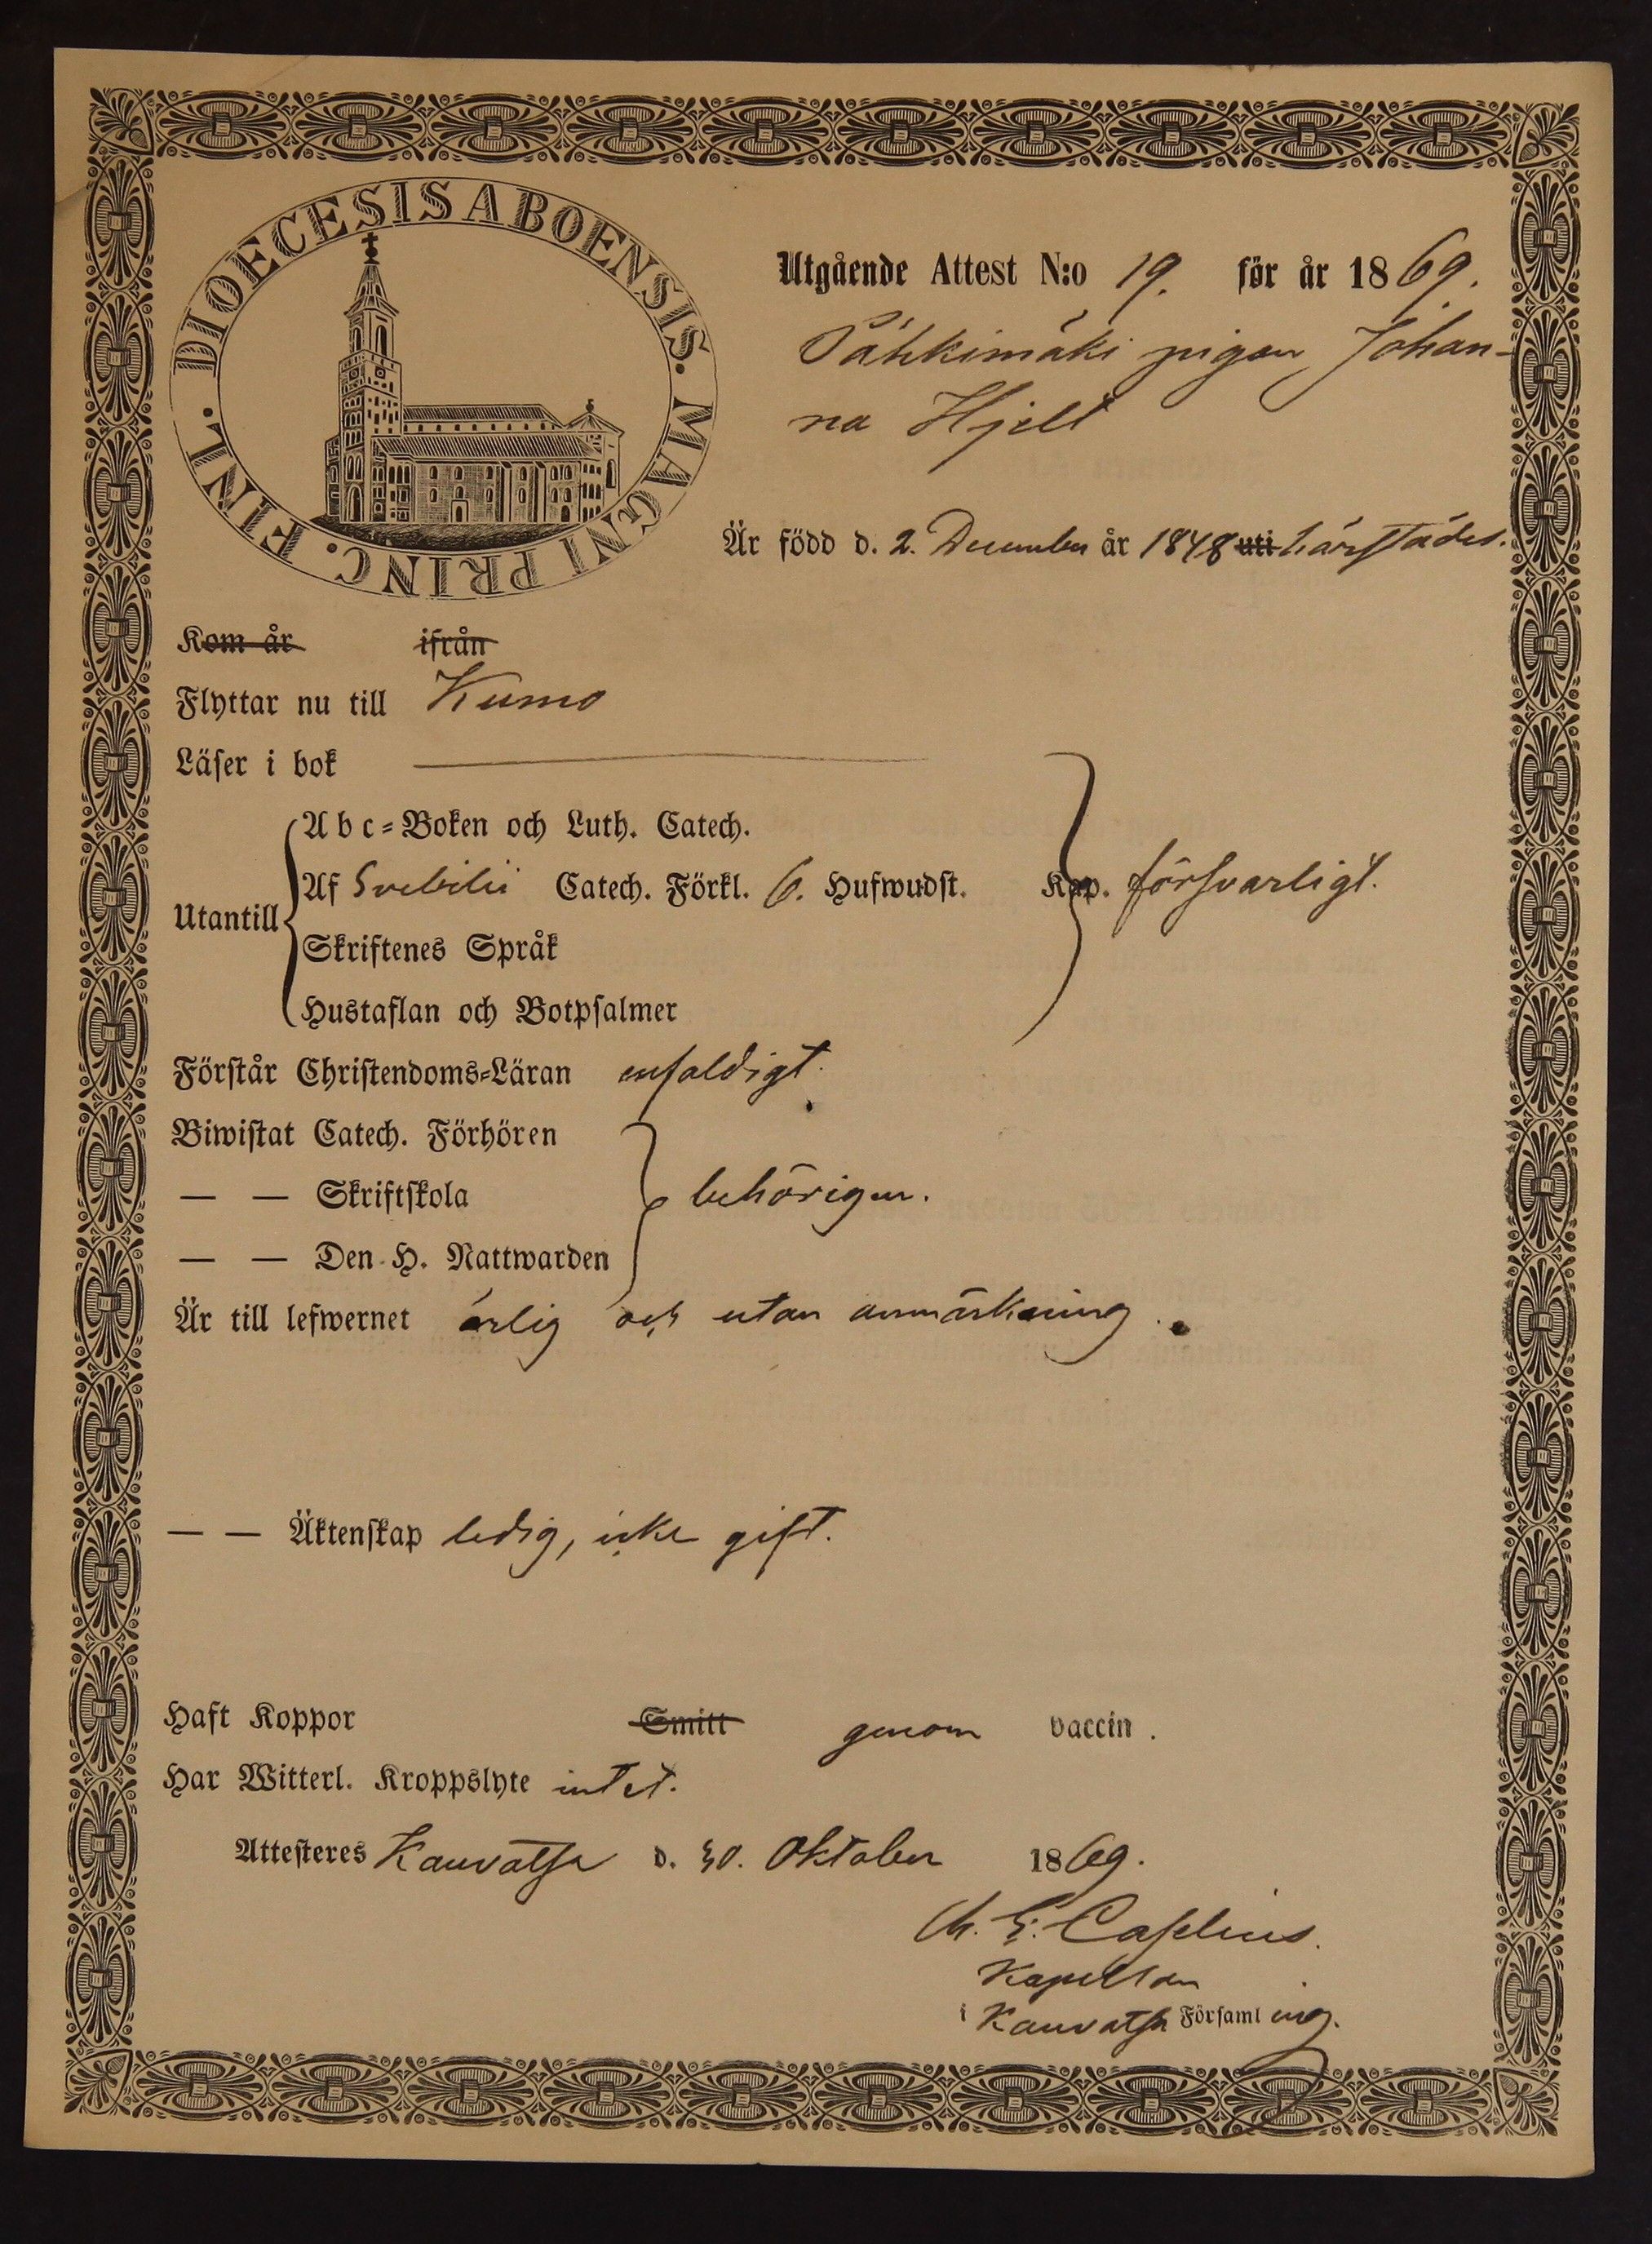 DIOECESIS ABOENSIS. MAGNI PRINC. FINL.
Utgående Attest N:o 19. för år 1869.
Pähkimäki pigan Johan-
na Hjelt
Är född d. 2. December år 1848 uti härstädes.
Kom år ifrån
Flyttar nu till Kumo
Läser i bok
Utantill
Abc-Boken och Luth. Catech.
Af Svebilii Catech. Förkl. 6. Hufwudst. Kap. försvarligt.
Skriftenes Språk
Hustaflan och Botpsalmer
Förstår Christendoms-Läran enfaldigt.
Biwistat Catech. Förhören
— — Skriftskola behörigen.
— — Den H. Nattwarden
Är till lefwernet ärlig och utan anmärkning.
— — Äktenskap ledig, icke gift.
Haft Koppor Smitt genom vaccin.
Har Witterl. Kroppslyte intet.
Attesteres Kauvatsa d. 30. Oktober 1869.
Caselius.
Kapellan
i Kauvatsa Församling.